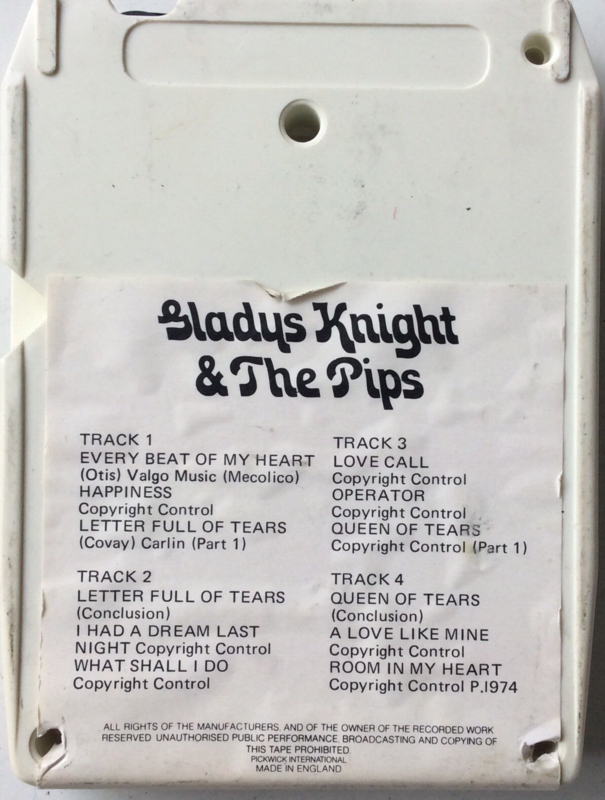 Gladys Knight
& The Pips
TRACK 1
EVERY BEAT OF MY HEART
(Otis) Valgo Music (Mecolico)
HAPPINESS
Copyright Control
LETTER FULL OF TEARS
(Covay) Carlin (Part 1)
TRACK 2
LETTER FULL OF TEARS
(Conclusion)
I HAD A DREAM LAST
NIGHT Copyright Control
WHAT SHALL I DO
Copyright Control
TRACK 3
LOVE CALL
Copyright Control
OPERATOR
Copyright Control
QUEEN OF TEARS
Copyright Control (Part 1)
TRACK 4
QUEEN OF TEARS
(Conclusion)
A LOVE LIKE MINE
Copyright Control
ROOM IN MY HEART
Copyright Control P.1974
ALL RIGHTS OF THE MANUFACTURERS. AND OF THE OWNER OF THE RECORDED WORK
RESERVED UNAUTHORISED PUBLIC PERFORMANCE. BROADCASTING AND COPYING OF
THIS TAPE PROHIBITED.
PICKWICK INTERNATIONAL
MADE IN ENGLAND